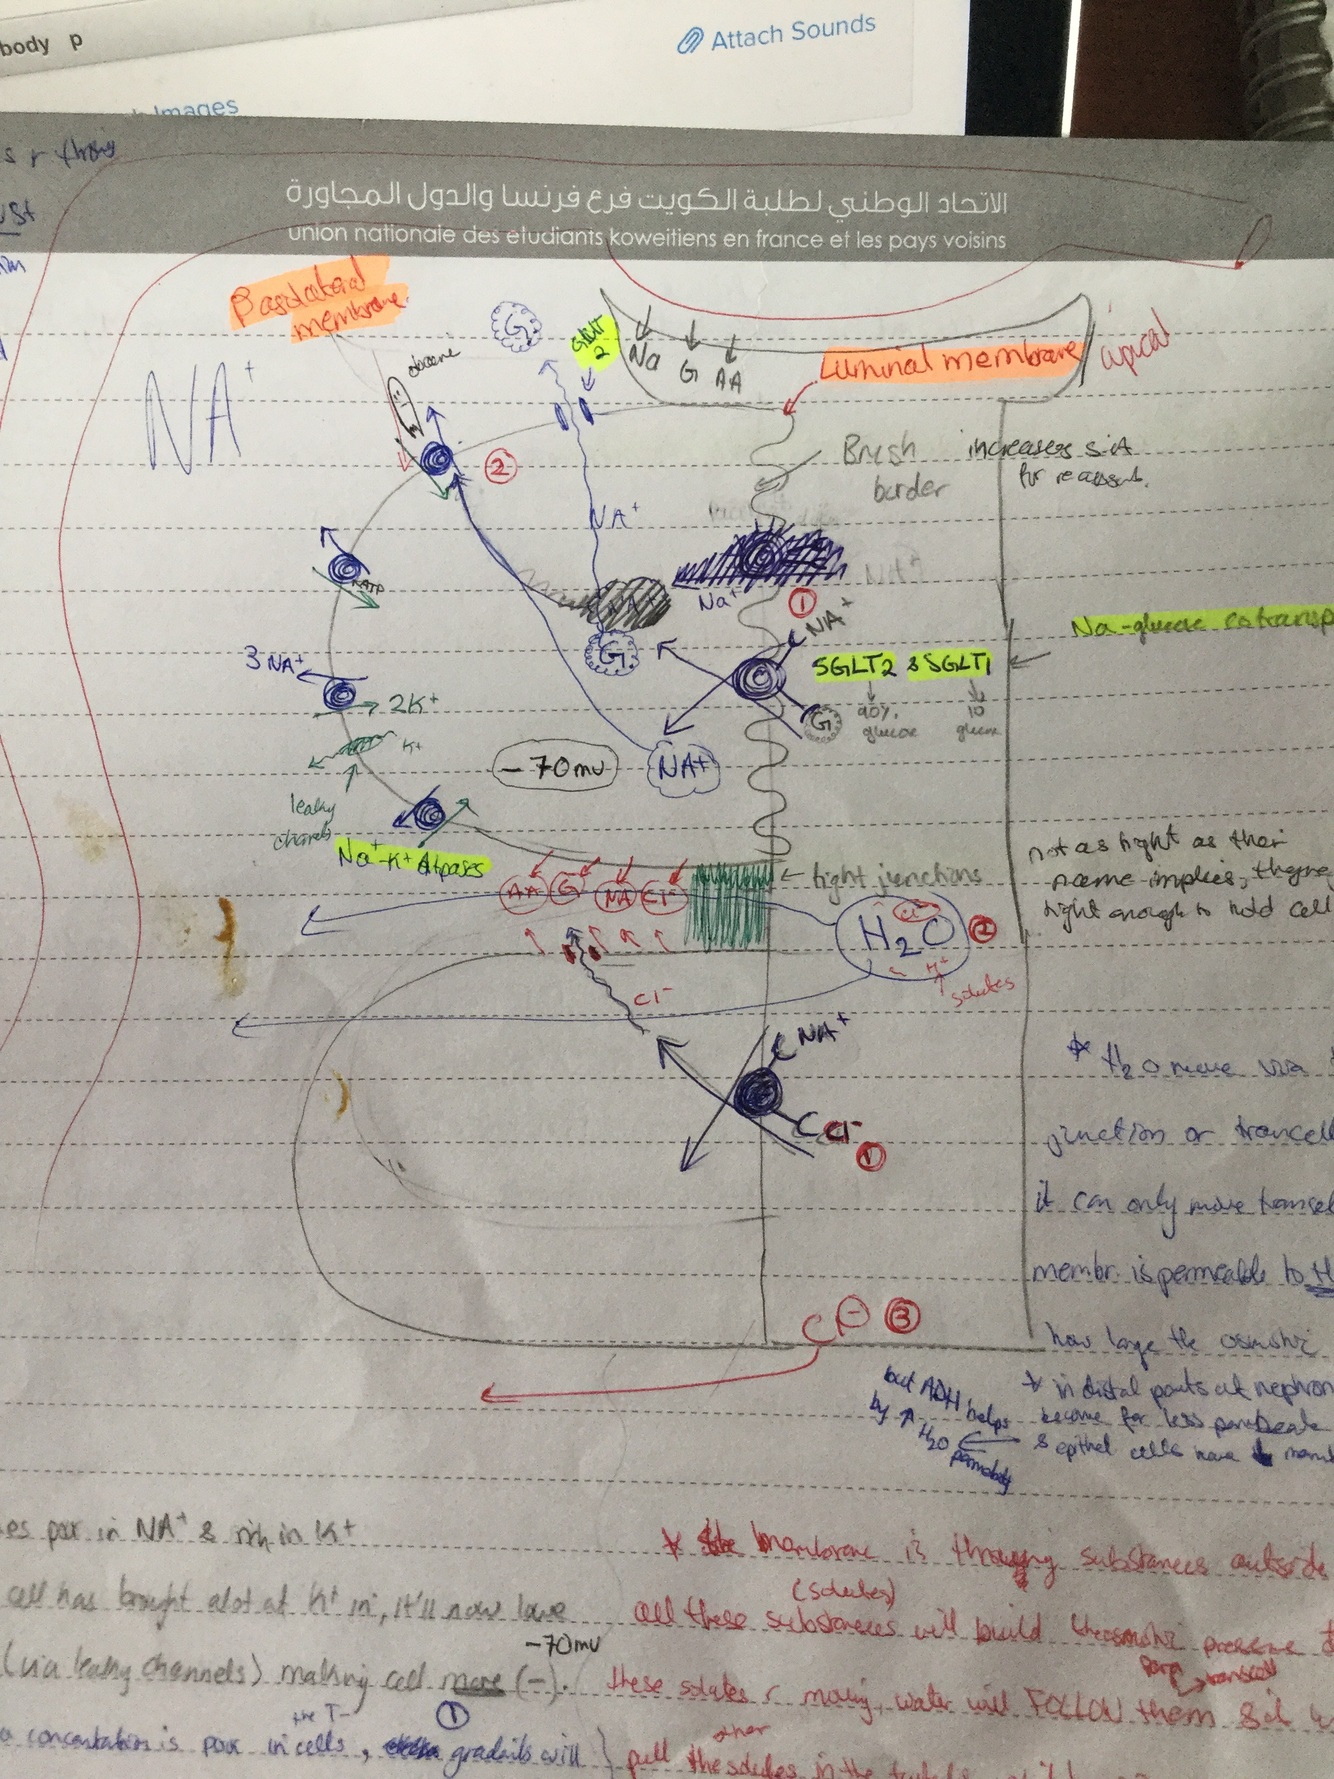 body p
Attach Sounds
Images
s r
الاتحاد الوطني لطلبة الكويت فرع فرنسا والدول المجاورة
union nationale des etudiants koweitiens en france et les pays voisins
Basolateral
membrane
G
GLUT
2
Na G AA
Luminal membrane
apical
NA+
2
Brush
border
increases S.A
for reabsorb.
NA+
ATP
Na+
1
NA+
Na-glucose cotransp
G
3 NA+
2K+
SGLT2 & SGLT1
G
90%
glucose
10
glucose
K+
-70mv
NA+
leaky
channels
Na+-K+ Atpases
AA G NA Cl-
tight junctions
not as tight as their
name implies, theyre
tight enough to hold cell
H2O
2
H+
solutes
Cl-
NA+
* H2O move via
junction or trancell
Cl-
1
it can only move transcel
membr. is permeable to H
Cl- 3
how large the osmotic
but ADH helps
by ↑
H2O
* in distal parts of nephron
become far less permbeale
& epithel cells have ↓
es poor in NA+ & rich in K+
* membrane is throwing substances outside
cell has brought alot of K+ in, it'll now leave
(solutes)
all these substances will build pressure
-70mv
(via leaky channels) making cell more (-).
these solutes r moving, water will FOLLOW them &
para
transcell
the
1
concentration is poor in cells, gradaits will
other
pull the solutes in the